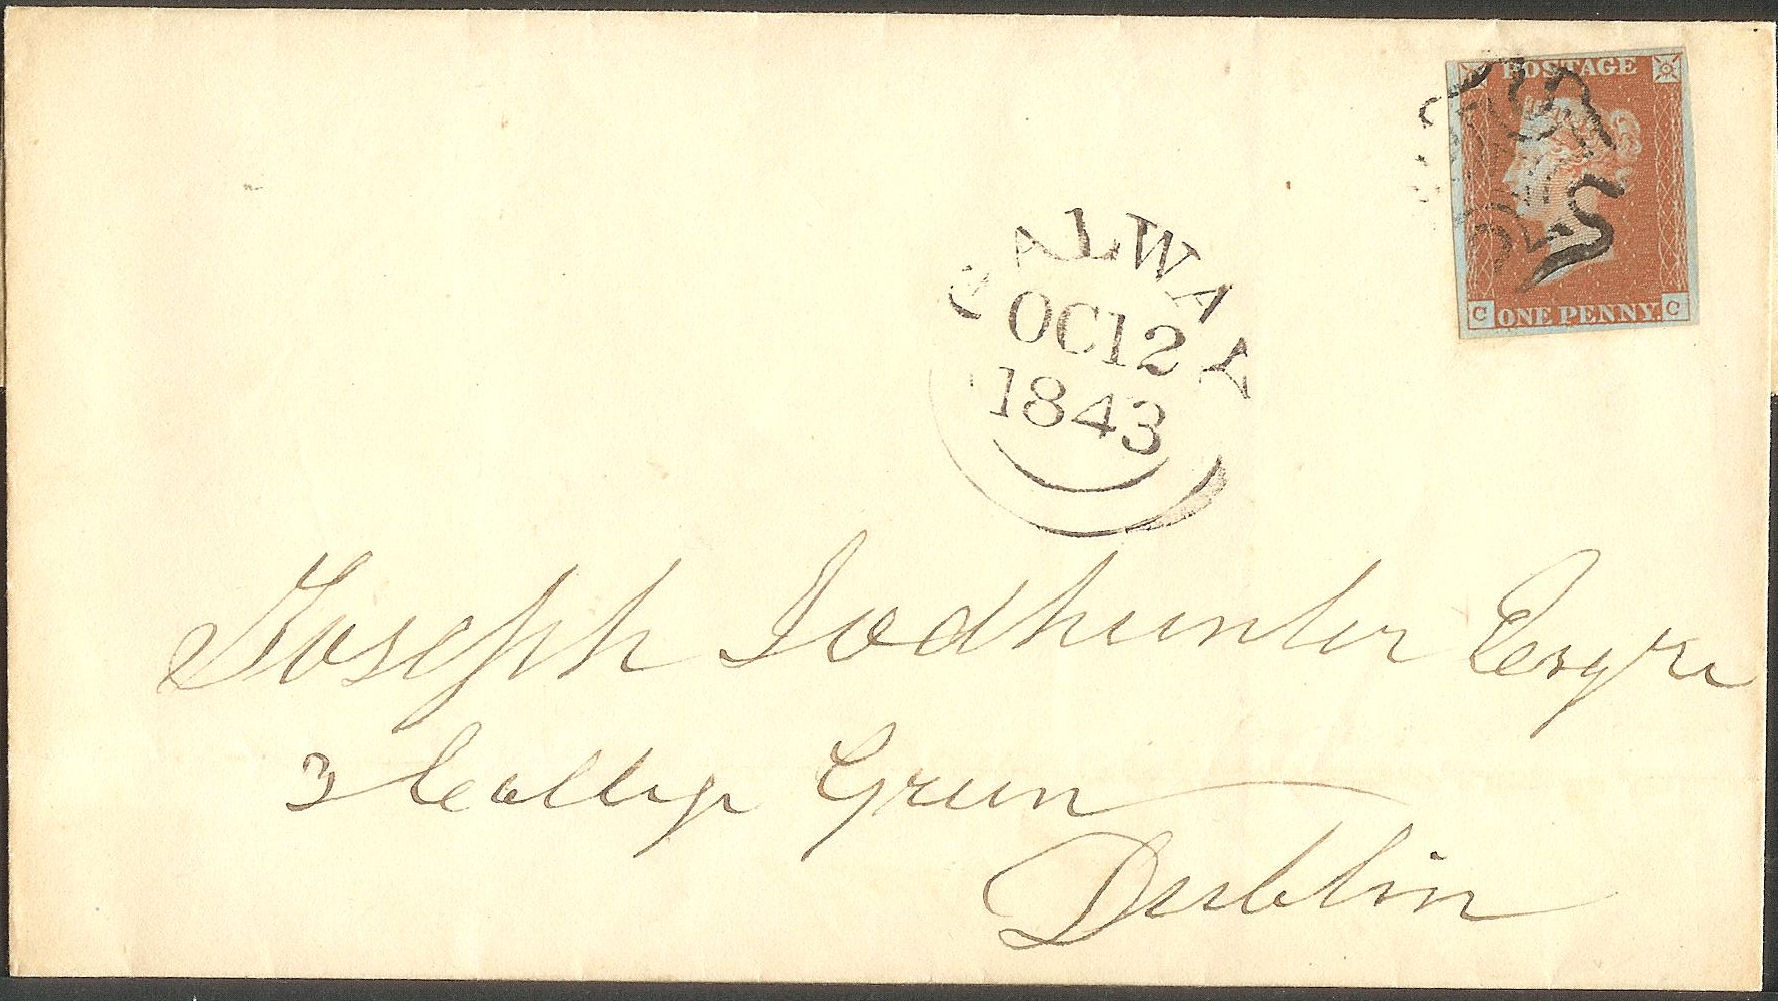 POSTAGE
C ONE PENNY. C
GALWAY
OC 12
1843
Joseph Todhunter Esqre
3 College Green
Dublin